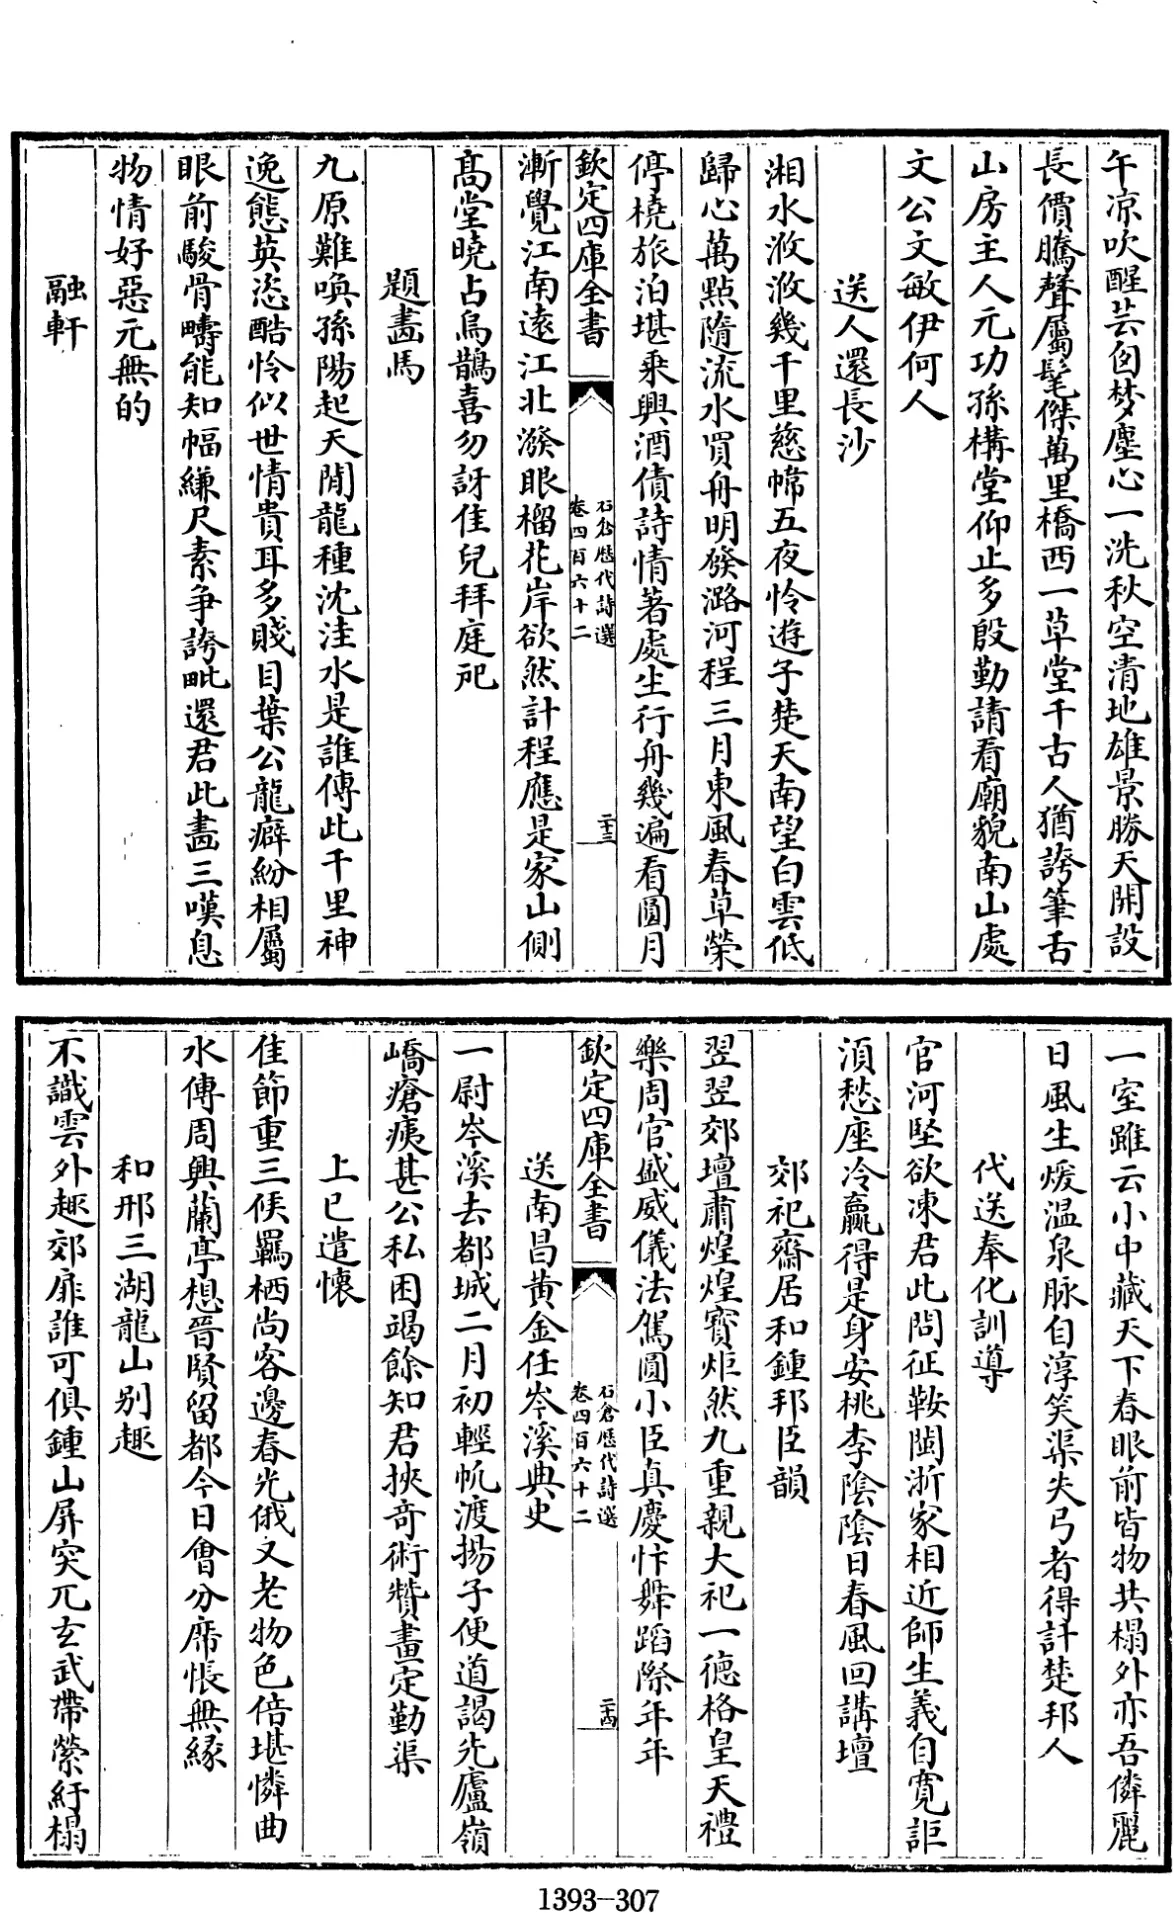 午凉吹醒芸囱梦塵心一洗秋空清地雄景勝天開設
長價騰聲屬髦傑萬里橋西一草堂千古人猶誇筆舌
山房主人元功孫構堂仰止多殷勤請看廟貌南山處
文公文敏伊何人
送人還長沙
湘水浟浟幾千里慈幃五夜怜遊子楚天南望白雲低
歸心萬點隨流水買舟明發潞河程三月東風春草榮
停橈旅泊堪乘興酒債詩情著處生行舟幾遍看圓月
欽定四庫全書
石倉歷代詩選
卷四百六十二
二十三
漸覺江南遠江北潑眼榴花岸欲然計程應是家山側
髙堂曉占烏鵲喜勿訝佳兒拜庭戺
題畵馬
九原難喚孫陽起天閒龍種沈洼水是誰傳此千里神
逸態英恣酷怜似世情貴耳多賤目葉公龍癖紛相屬
眼前駿骨疇能知幅縑尺素争誇毗還君此畵三嘆息
物情好惡元無的
融軒
一室雖云小中藏天下春眼前皆物共榻外亦吾儕麗
日風生煖温泉脉自淳笑渠失弓者得訐楚邦人
代送奉化訓導
官河堅欲凍君此問征鞍閩浙家相近師生義自寛詎
湏愁座冷贏得是身安桃李陰陰日春風回講壇
郊祀齋居和鍾邦臣韻
翌翌郊壇肅煌煌寳炬然九重親大祀一德格皇天禮
樂周官盛威儀法駕圓小臣真慶忭舞蹈際年年
欽定四庫全書
石倉歷代詩選
卷四百六十二
二十四
送南昌黄金任岑溪典史
一尉岑溪去都城二月初輕帆渡揚子便道謁先廬嶺
嶠瘡痍甚公私困竭餘知君挾奇術贊畫定勤渠
上巳遣懷
佳節重三候羈栖尚客邊春光俄又老物色倍堪憐曲
水傳周興蘭亭想晉賢留都今日會分席悵無緣
和邢三湖龍山别趣
不識雲外趣郊扉誰可俱鍾山屏突兀玄武帶縈紆榻
1393-307